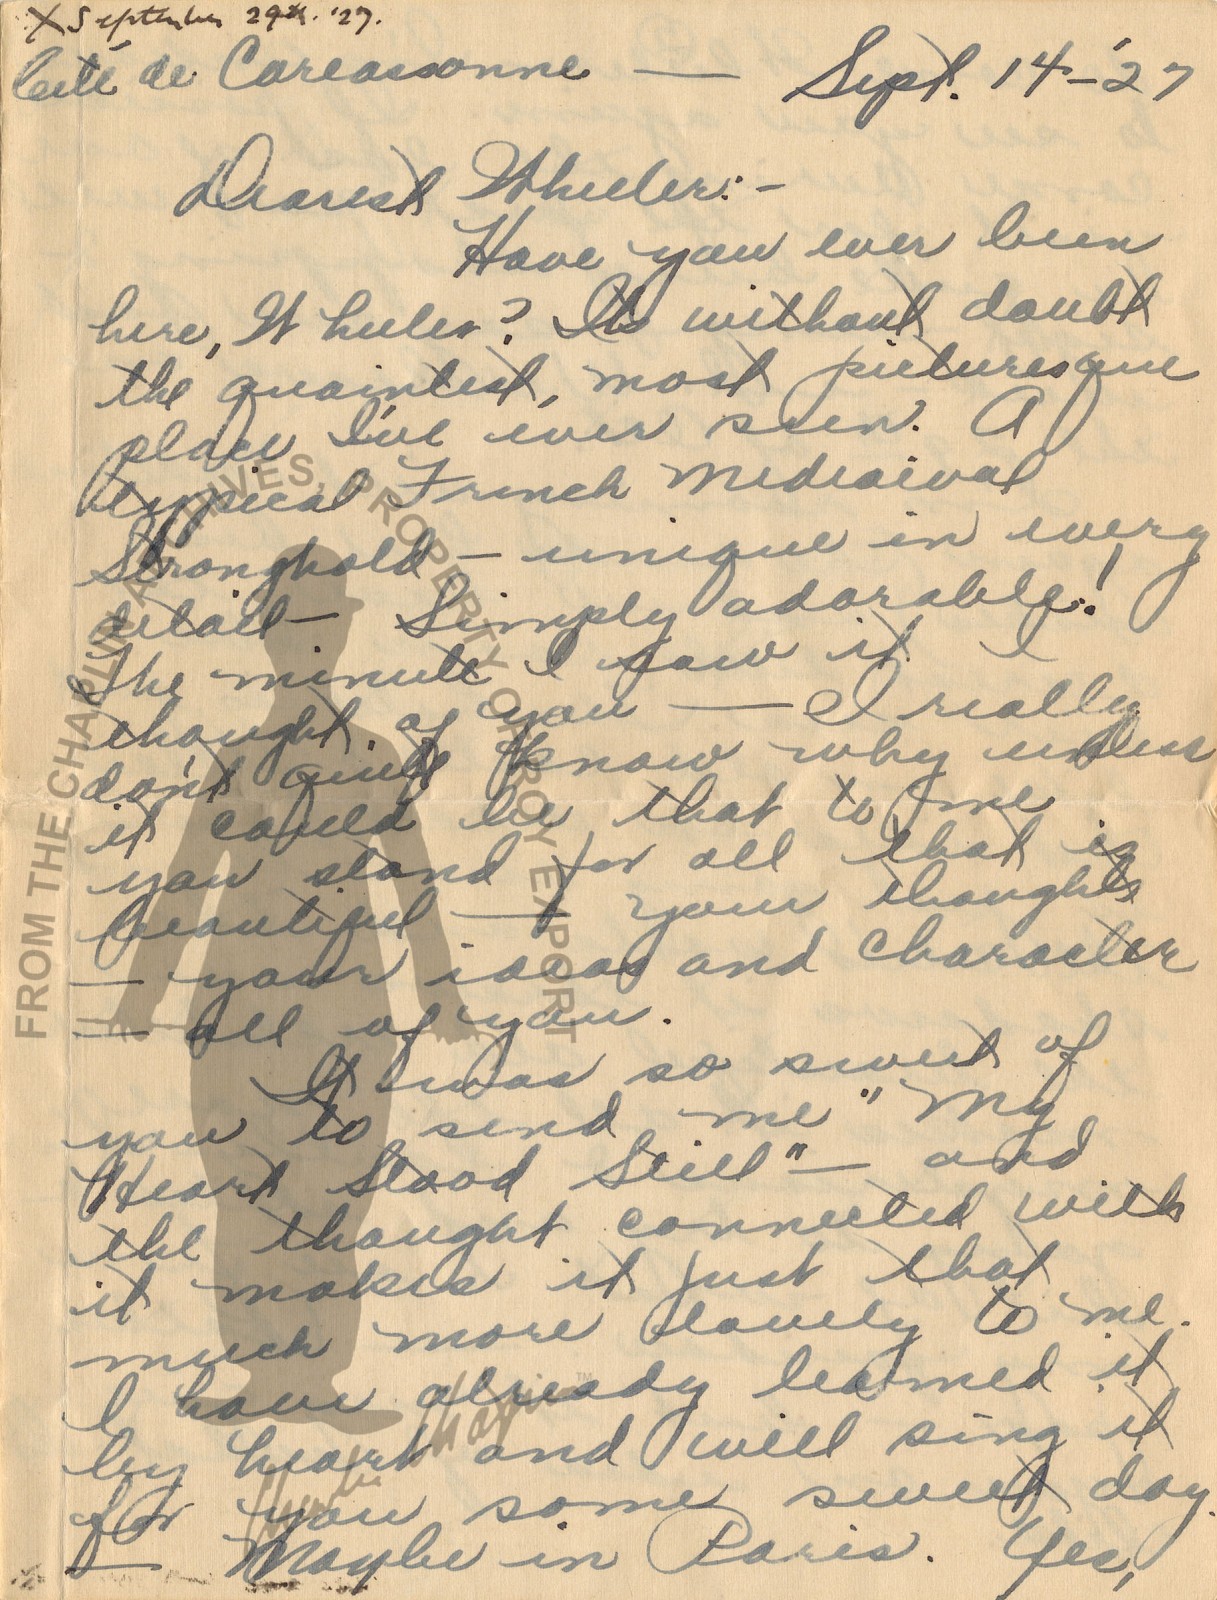 X September 29th. '27.
Cité de Carcassonne — Sept. 14-'27
Dearest Wheeler:-
Have you ever been
here, Wheeler? Its without doubt
the quaintest, most picturesque
place I've ever seen. A
typical French Mediaival
Stronghold - unique in every
detail - Simply adorable!
The minute I saw it I
thought of you — I really
don't quite know why unless
it could be that to me
you stand for all that is
beautiful — your thoughts
— your ideas and character
— all of you.
It was so sweet of
you to send me "My
Heart Stood Still" — and
the thought connected with
it makes it just that
much more lovely to me.
I have already learned it
by heart and will sing it
for you some sweet day.
— Maybe in Paris. Yes,
FROM THE CHAPLIN ARCHIVES, PROPERTY OF ROY EXPORT
Charlie Chaplin ™